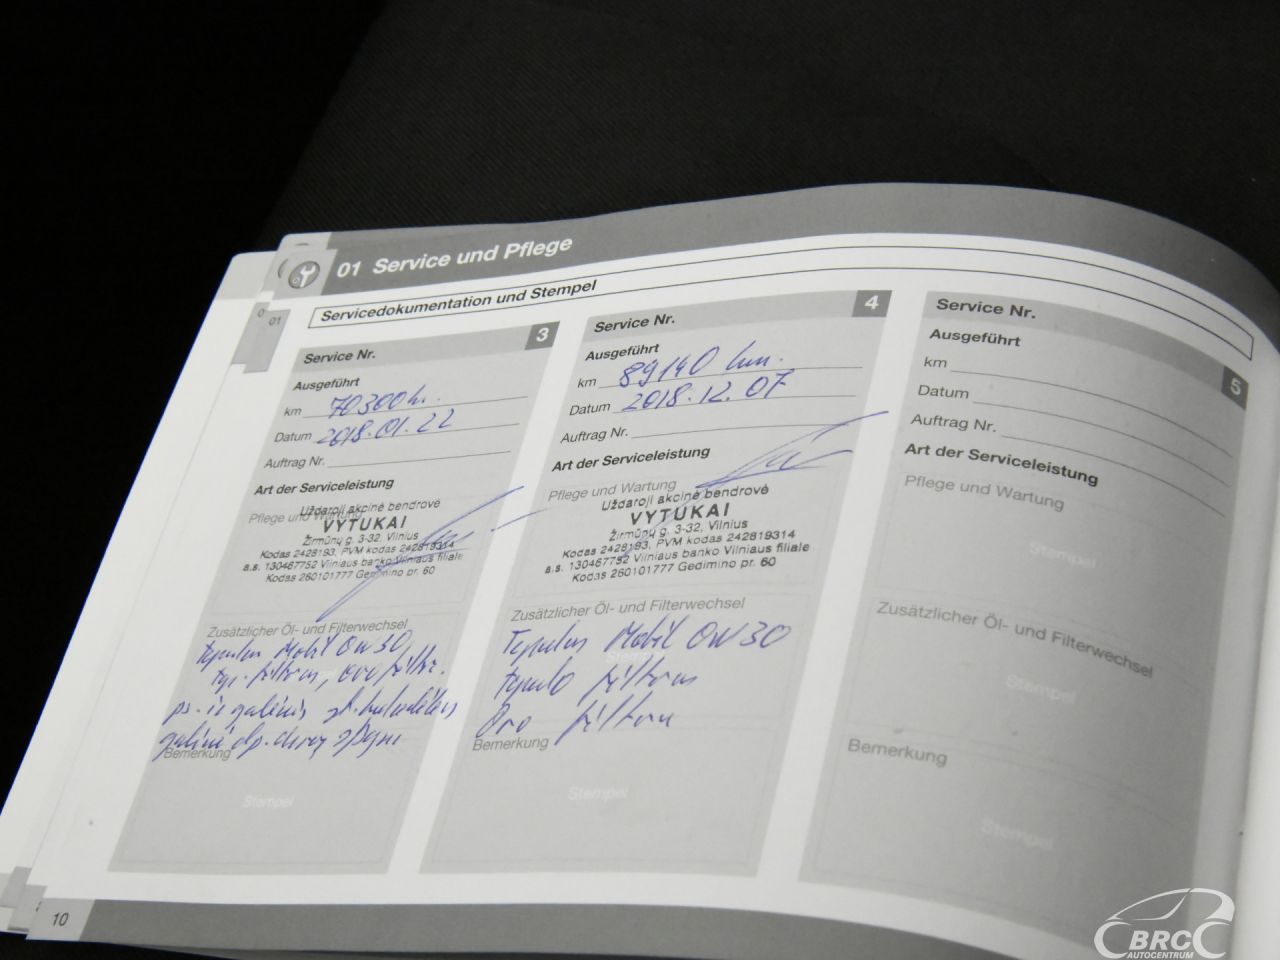 01 Service und Pflege
01
Servicedokumentation und Stempel
Service Nr. 3
Ausgeführt
km 70300 km.
Datum 2018.01.22
Auftrag Nr.
Art der Serviceleistung
Pflege und Wartung
Uždaroji akcinė bendrovė
VYTUKAI
Žirmūnų g. 3-32, Vilnius
Kodas 2428193, PVM kodas 242819314
a.s. 130467752 Vilniaus banko Vilniaus filiale
Kodas 260101777 Gedimino pr. 60
Zusätzlicher Öl- und Filterwechsel
Tepalas Mobil 0W30
tep. filtras, oro filtr.
galinis
Bemerkung
Stempel
Service Nr. 4
Ausgeführt
km 89140 km.
Datum 2018.12.07
Auftrag Nr.
Art der Serviceleistung
Pflege und Wartung
Uždaroji akcinė bendrovė
VYTUKAI
Žirmūnų g. 3-32, Vilnius
Kodas 2428193, PVM kodas 242819314
a.s. 130467752 Vilniaus banko Vilniaus filiale
Kodas 260101777 Gedimino pr. 60
Zusätzlicher Öl- und Filterwechsel
Tepalas Mobil 0W30
Stempel
tepalo filtras
Oro filtras
Bemerkung
Stempel
Service Nr. 5
Ausgeführt
km
Datum
Auftrag Nr.
Art der Serviceleistung
Pflege und Wartung
Stempel
Zusätzlicher Öl- und Filterwechsel
Stempel
Bemerkung
Stempel
10
BRC
AUTOCENTRUM